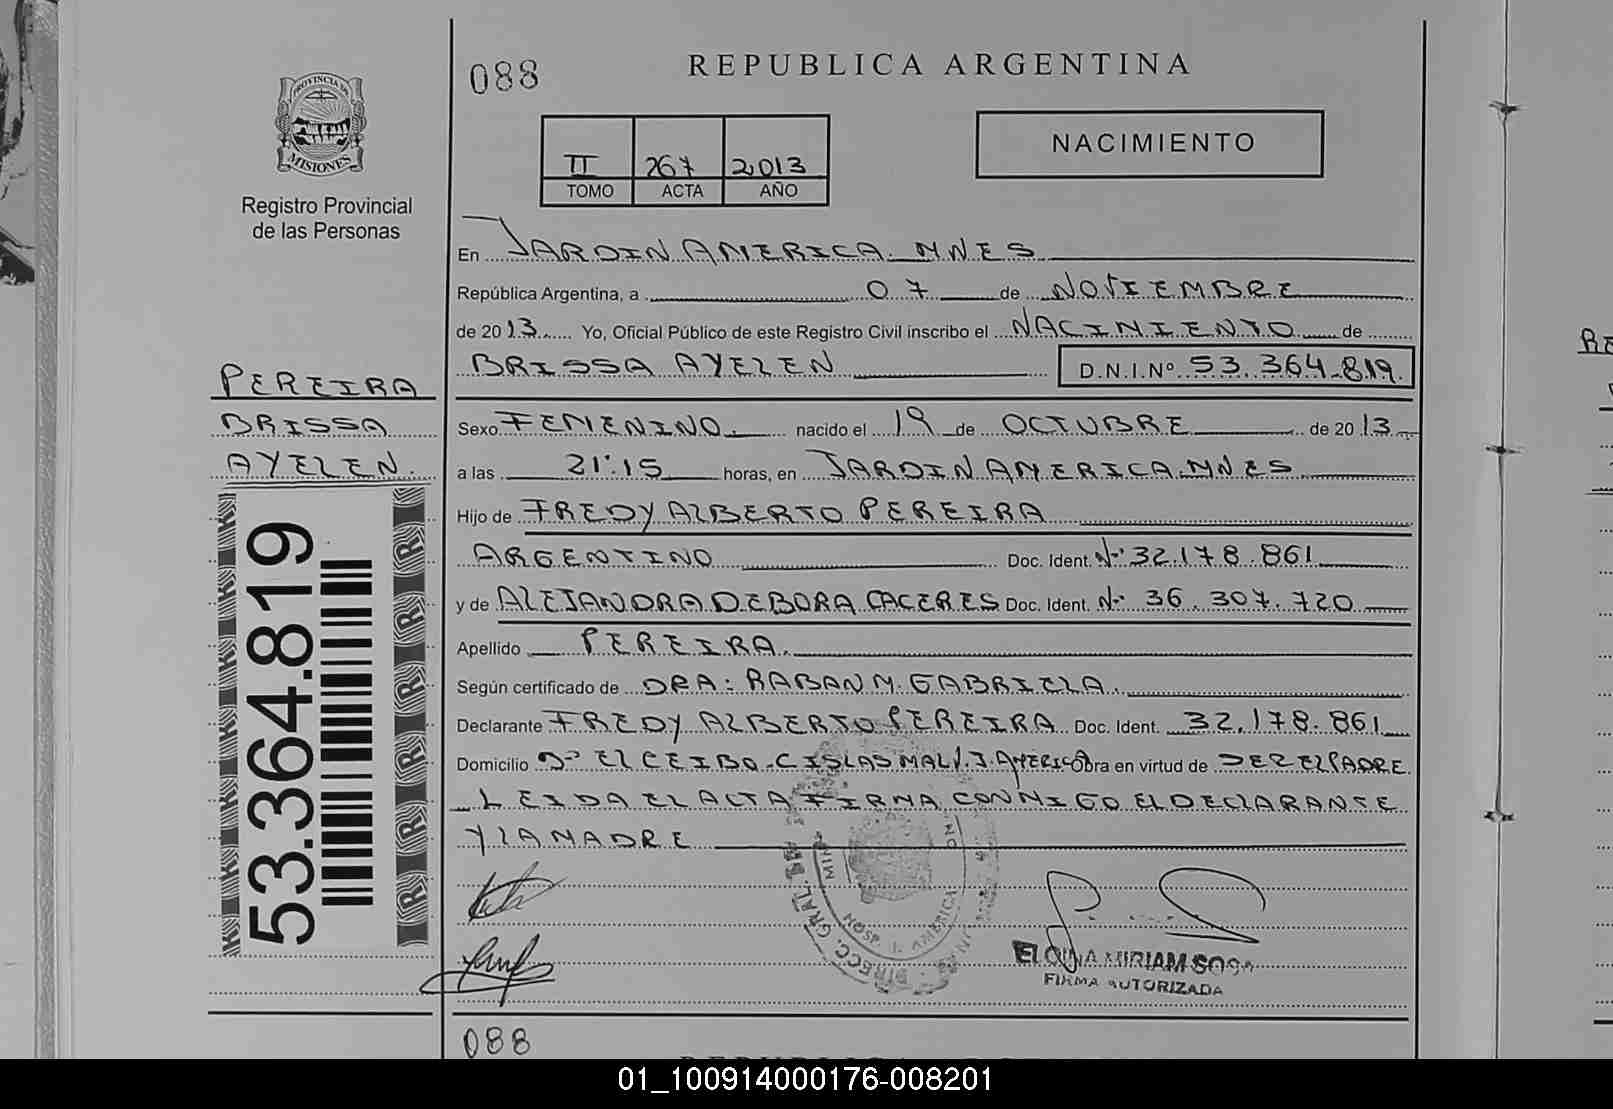 088
REPUBLICA ARGENTINA
PROVINCIA DE
MISIONES
Registro Provincial
de las Personas
II 267 2,013
TOMO ACTA AÑO
NACIMIENTO
En JARDIN AMERICA. MNES
República Argentina, a 07 de NOVIEMBRE
de 2013 Yo, Oficial Público de este Registro Civil inscribo el NACIMIENTO de
BRISSA AYELEN D.N.I.Nº 53.364.819.
PEREIRA
BRISSA
AYELEN.
Sexo FEMENINO. nacido el 19 de OCTUBRE de 2013
a las 21:15 horas, en JARDIN AMERICA. MNES
Hijo de FREDY ALBERTO PEREIRA
ARGENTINO Doc. Ident. Nº 32.178.861
y de ALEJANDRA DEBORA CACERES Doc. Ident. Nº 36.307.720
Apellido PEREIRA.
Según certificado de DRA: RABAN M. GABRIELA.
Declarante FREDY ALBERTO PEREIRA Doc. Ident. 32.178.861
Domicilio Bº EL CEIBO. C ISLAS MALV. J. AMERICA Obra en virtud de SER EL PADRE.
LEIDA EL ACTA FIRMA CONMIGO EL DECLARANTE
Y LA MADRE
53.364.819
DIRECC. GRAL.
HOSP. J. AMERICA
MIRIAM SOSA
FIRMA AUTORIZADA
088
01_100914000176-008201